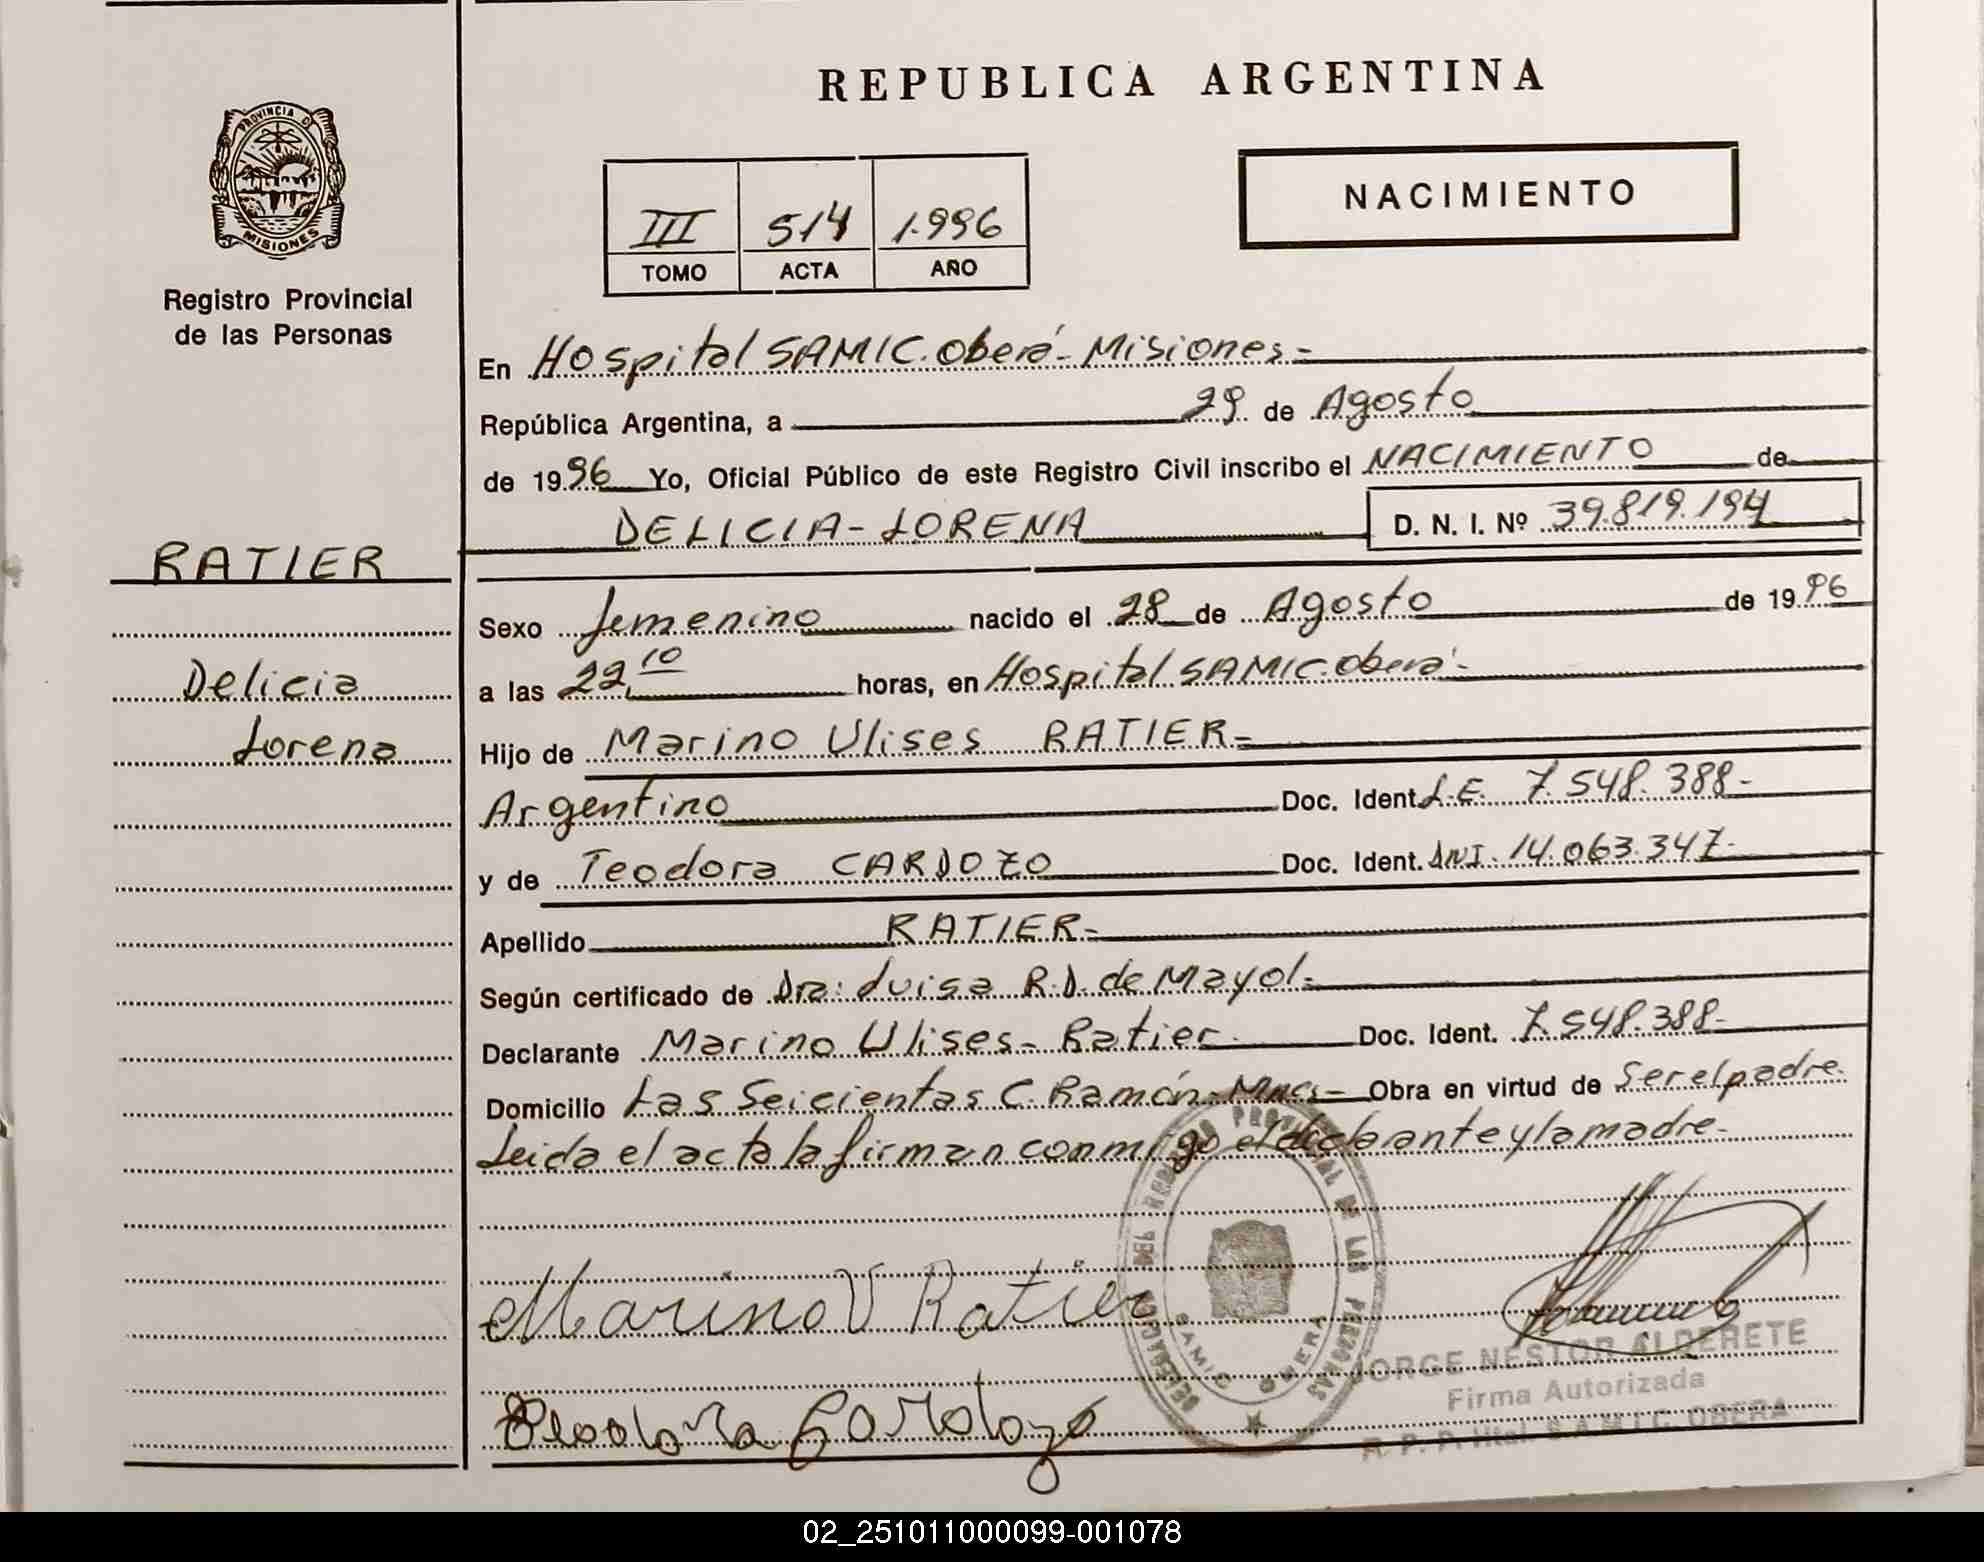 REPUBLICA ARGENTINA
PROVINCIA D
MISIONES
Registro Provincial
de las Personas
NACIMIENTO
III 514 1.996
TOMO ACTA AÑO
En Hospital SAMIC. Oberá - Misiones -
República Argentina, a 29 de Agosto
de 1996 Yo, Oficial Público de este Registro Civil inscribo el NACIMIENTO de
DELICIA - LORENA D. N. I. Nº 39.819.194
RATIER
Delicia
Lorena
Sexo femenino nacido el 28 de Agosto de 1996
a las 22,10 horas, en Hospital SAMIC. Oberá -
Hijo de Marino Ulises RATIER -
Argentino Doc. Ident. L.E. 7.548.388 -
y de Teodora CARDOZO Doc. Ident. DNI. 14.063.347 -
Apellido RATIER -
Según certificado de Dra: Luisa R.D. de Mayol -
Declarante Marino Ulises - Ratier - Doc. Ident. 7.548.388 -
Domicilio Las Seicientas C. Ramón - Mnes - Obra en virtud de Ser el padre
Leida el acta la firman conmigo el declarante y la madre -
Marino U Ratier
Teodora Cardozo
DELEGACION DEL REGISTRO PROVINCIAL DE LAS PERSONAS
SAMIC OBERA
JORGE NESTOR ALDERETE
Firma Autorizada
R. P. P. Htal. S.A.M.I.C. OBERA
02_251011000099-001078